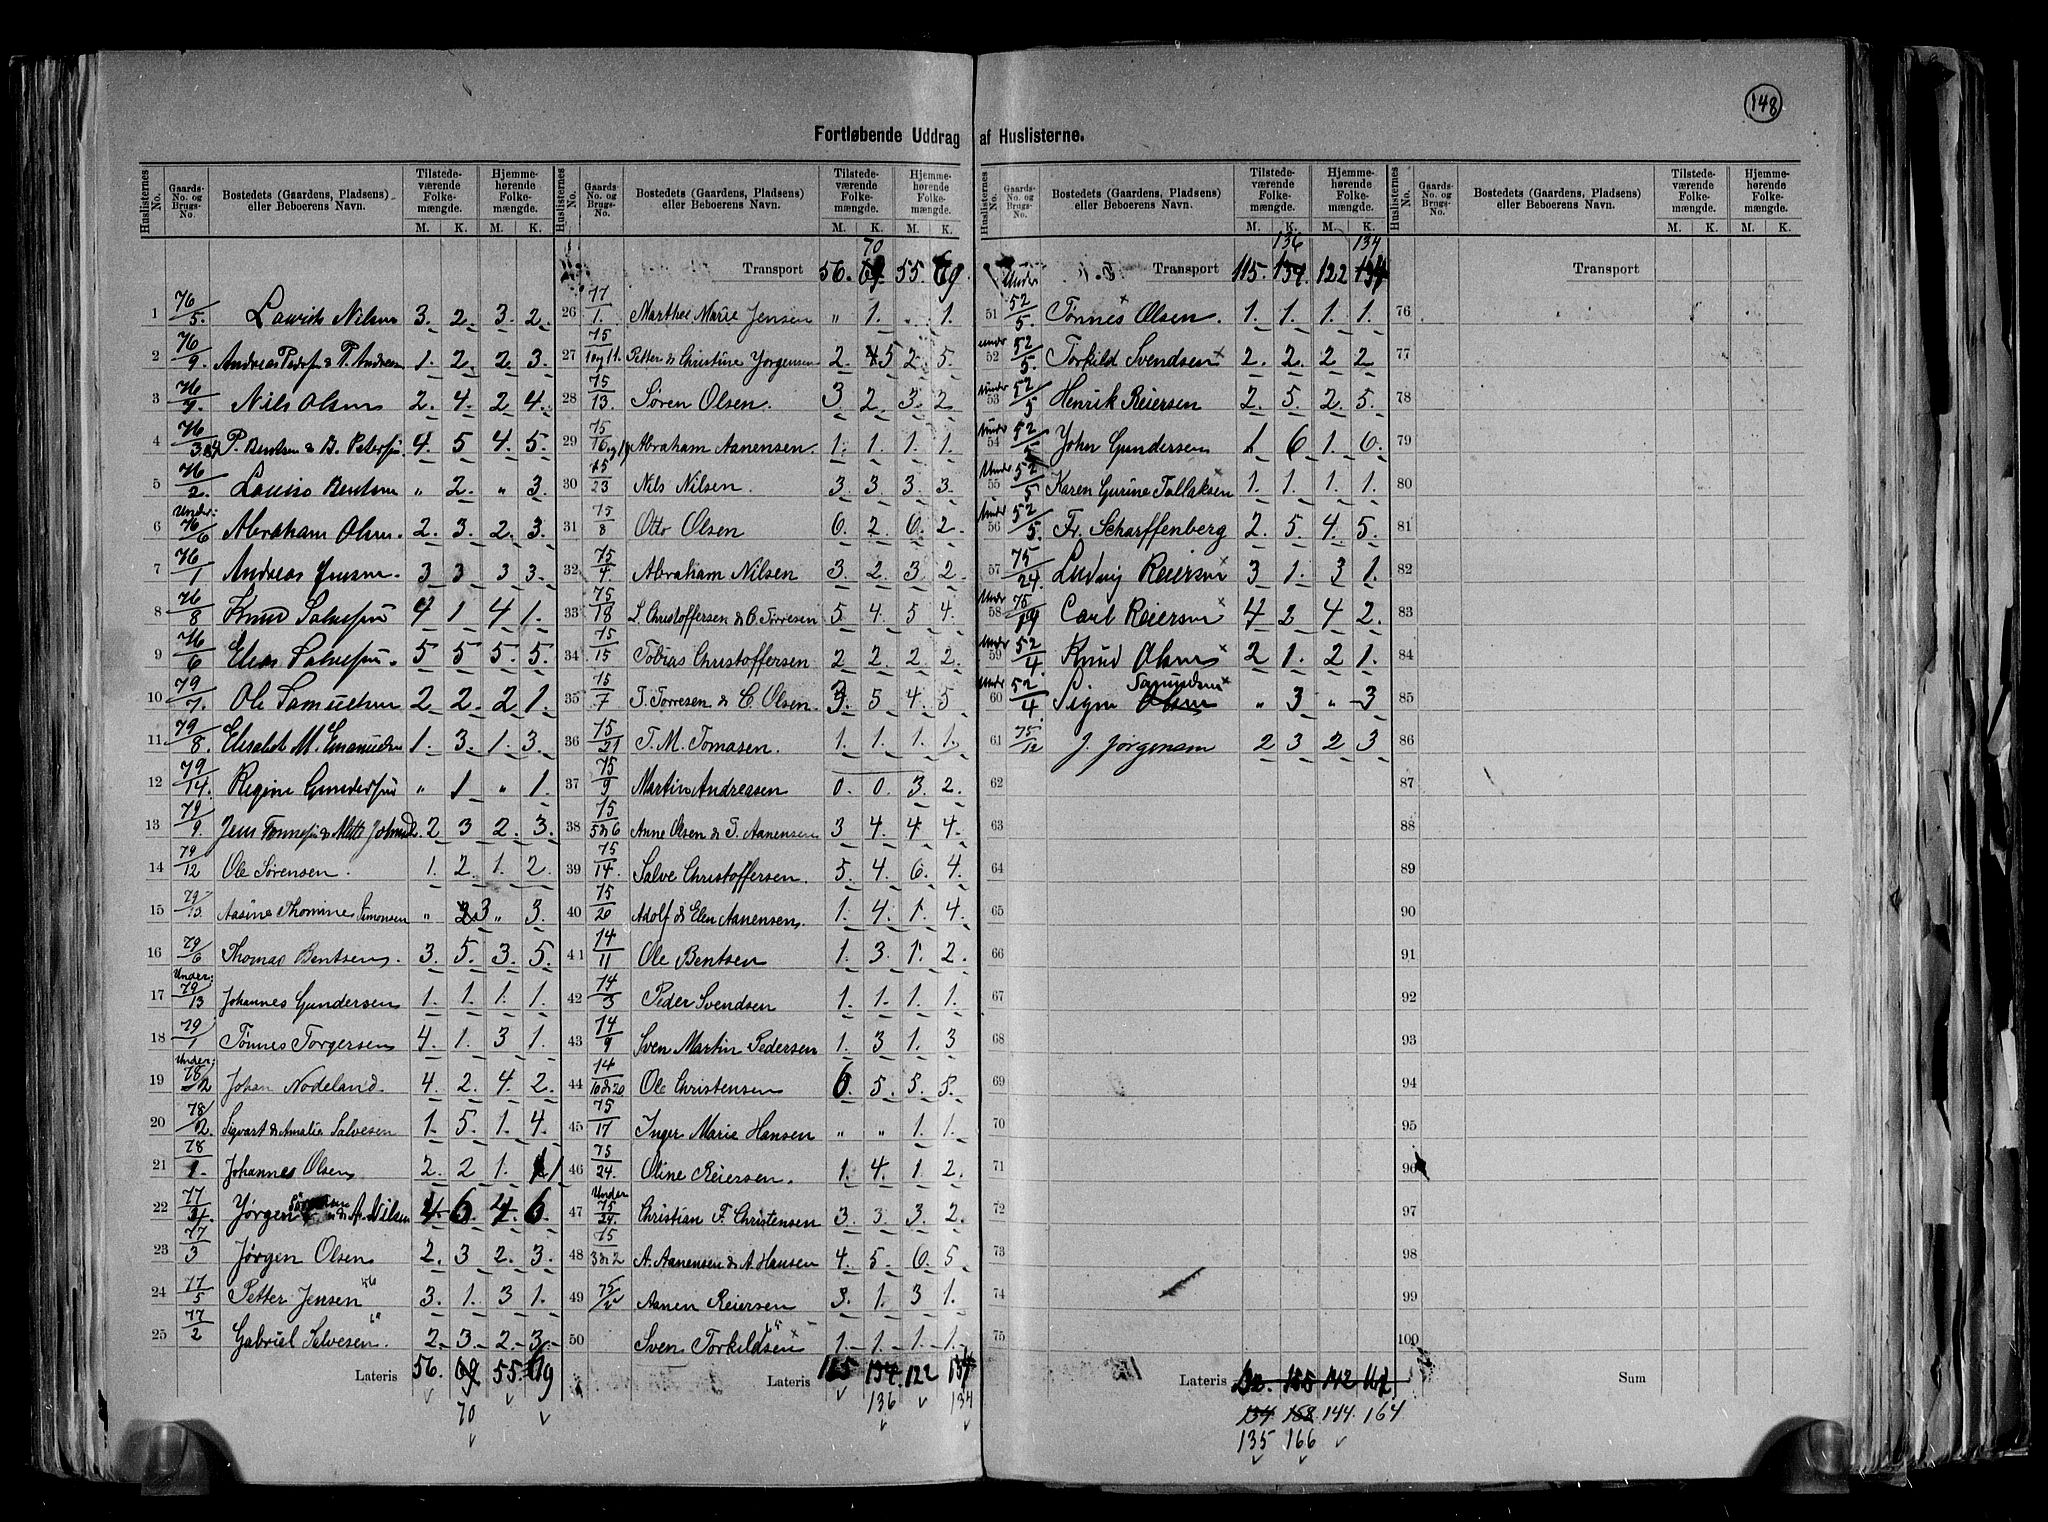 148
Fortløbende Uddrag af Huslisterne.
Huslisternes No. Gaards-No. og Brugs-No. Bostedets (Gaardens, Pladsens) eller Beboerens Navn. Tilstedeværende Folkemængde. M. K. Hjemmehørende Folkemængde. M. K.
1 76/5. Lavids Nilsen 3. 2. 3. 2.
2 76/9. 1. 2. 2. 3.
3 76/7. Nils Olsen 2. 4. 2. 4.
4 76/3 P. Bentsen & B. Petersen 4. 5. 4. 5.
5 76/2. Louise Bentsen " 2. " 3.
6 Under: 76/6 Abraham Olsen. 2. 3. 2. 3.
7 76/1 Andreas Jensen. 3 3 3 3.
8 76/8 Knud Salvesen 4 1 4 1.
9 76/6 Elias Salvesen. 5 5 5. 5.
10 79/7. Ole Samuelsen 2 2. 2 1.
11 79/8. Elisabeth M. Emanuelsen 1. 3. 1. 3.
12 79/14. Regine Gundersen " 1 " 1.
13 79/9. Jens Tønnesen & Mette 2. 3 2. 3.
14 79/12 Ole Sørensen. 1. 2. 1. 2.
15 79/13 Aasine Thomine Simonsen " 3 " 3.
16 79/6 Thomas Bentsen. 3. 5. 3. 5.
17 Under: 79/13 Johannes Gundersen 1. 1. 1. 1.
18 79/1 Tønnes Torgersen 4. 1. 3 1.
19 Under: 78/2 Johan Nodeland. 4. 2. 4. 2.
20 78/2. Sigvart & Amalie Salvesen 1. 5. 1. 4.
21 78/1. Johannes Olsen 2. 2 1. 1
22 77/4. Jørgen & A. Nilsen 4 6. 4. 6.
23 77/3 Jørgen Olsen 2. 3 2. 3.
24 77/5 Petter Jensen 3. 1. 3 1.
25 77/2 Gabriel Salvesen. 2. 3. 2. 3.
Lateris 56. 69 55. 69
70
Transport 56. 69 55. 69.
70
26 77/1. Marthe Marie Jensen " 1. . 1.
27 75/10 og 11. Petter & Christine Jørgensen 2. 5 2. 5.
28 75/13 Søren Olsen. 3. 2. 3. 2
29 75/16 og 19 Abraham Aanensen. 1. 1. 1. 1.
30 75/23 Nils Nilsen. 3. 3. 3. 3.
31 75/8 Otto Olsen 6. 2. 6. 2.
32 75/4. Abraham Nilsen 3. 2. 3. 2.
33 75/18 L. Christoffersen & C. Torresen 5. 4. 5 4.
34 75/15 Tobias Christoffersen 2. 2. 2. 2.
35 75/7 T. Torresen & C. Olsen. 3. 5 4. 5
36 75/21 T. M. Tomasen. 1. 1. 1. 1.
37 75/9 Martin Andreasen 0. 0. 3. 2.
38 75/5 & 6 Anne Olsen & T. Aanensen 3 4. 4 4.
39 75/14. Salve Christoffersen. 5. 4. 6. 4.
40 75/20 Adolf & Elen Aanensen. 1. 4. 1. 4.
41 74/11 Ole Bentsen 1. 3. 1. 2.
42 74/3 Peder Svendsen 1. 1. 1. 1.
43 74/9 Sven Martin Pedersen 1. 3 1. 3
44 74/10 & 20 Ole Christensen 6. 5. 5. 5.
45 75/17 Inger Marie Hansen " " 1 1.
46 75/24. Oline Reiersen. 1. 4. 1 2.
47 Under 75/24. Christian F. Christensen 3. 3. 3. 2.
48 75/3 & 2 A. Aanensen & A. Hansen 4. 5. 6. 5
49 Aanen Reiersen 3. 1. 3 1.
50 Sven Torkildsen 1. 1. 1. 1.
Lateris 115 134. 122 134
136 134
136 134
Transport 115. 134. 122 134
51 Under 52/5. Tønnes Olsen. 1. 1. 1. 1.
52 Under 52/5. Torkild Svendsen 2. 2. 2 2
53 Under 52/5 Henrik Reiersen 2. 5. 2. 5.
54 Under 52/5 John Gundersen 1 6 1. 6.
55 Under 52/5 Karen Gurine Tallaksen 1. 1. 1. 1.
56 Under 52/5. Fr. Scharffenberg 2. 5. 4. 5.
57 75/24. Ludvig Reiersen 3 1. 3 1.
58 Under 75/19 Carl Reiersen 4 2 4 2.
59 Under 52/4. Knud Olsen 2 1. 2 1.
60 Under 52/4 Signe Olsen " 3 " 3
61 75/12 J. Jørgensen 2 3 2 3
62
63
64
65
66
67
68
69
70
71
72
73
74
75
Lateris 155 142
134 162 144. 164.
135 166
Transport
76
77
78
79
80
81
82
83
84
85
86
87
88
89
90
91
92
93
94
95
96
97
98
99
100
Sum